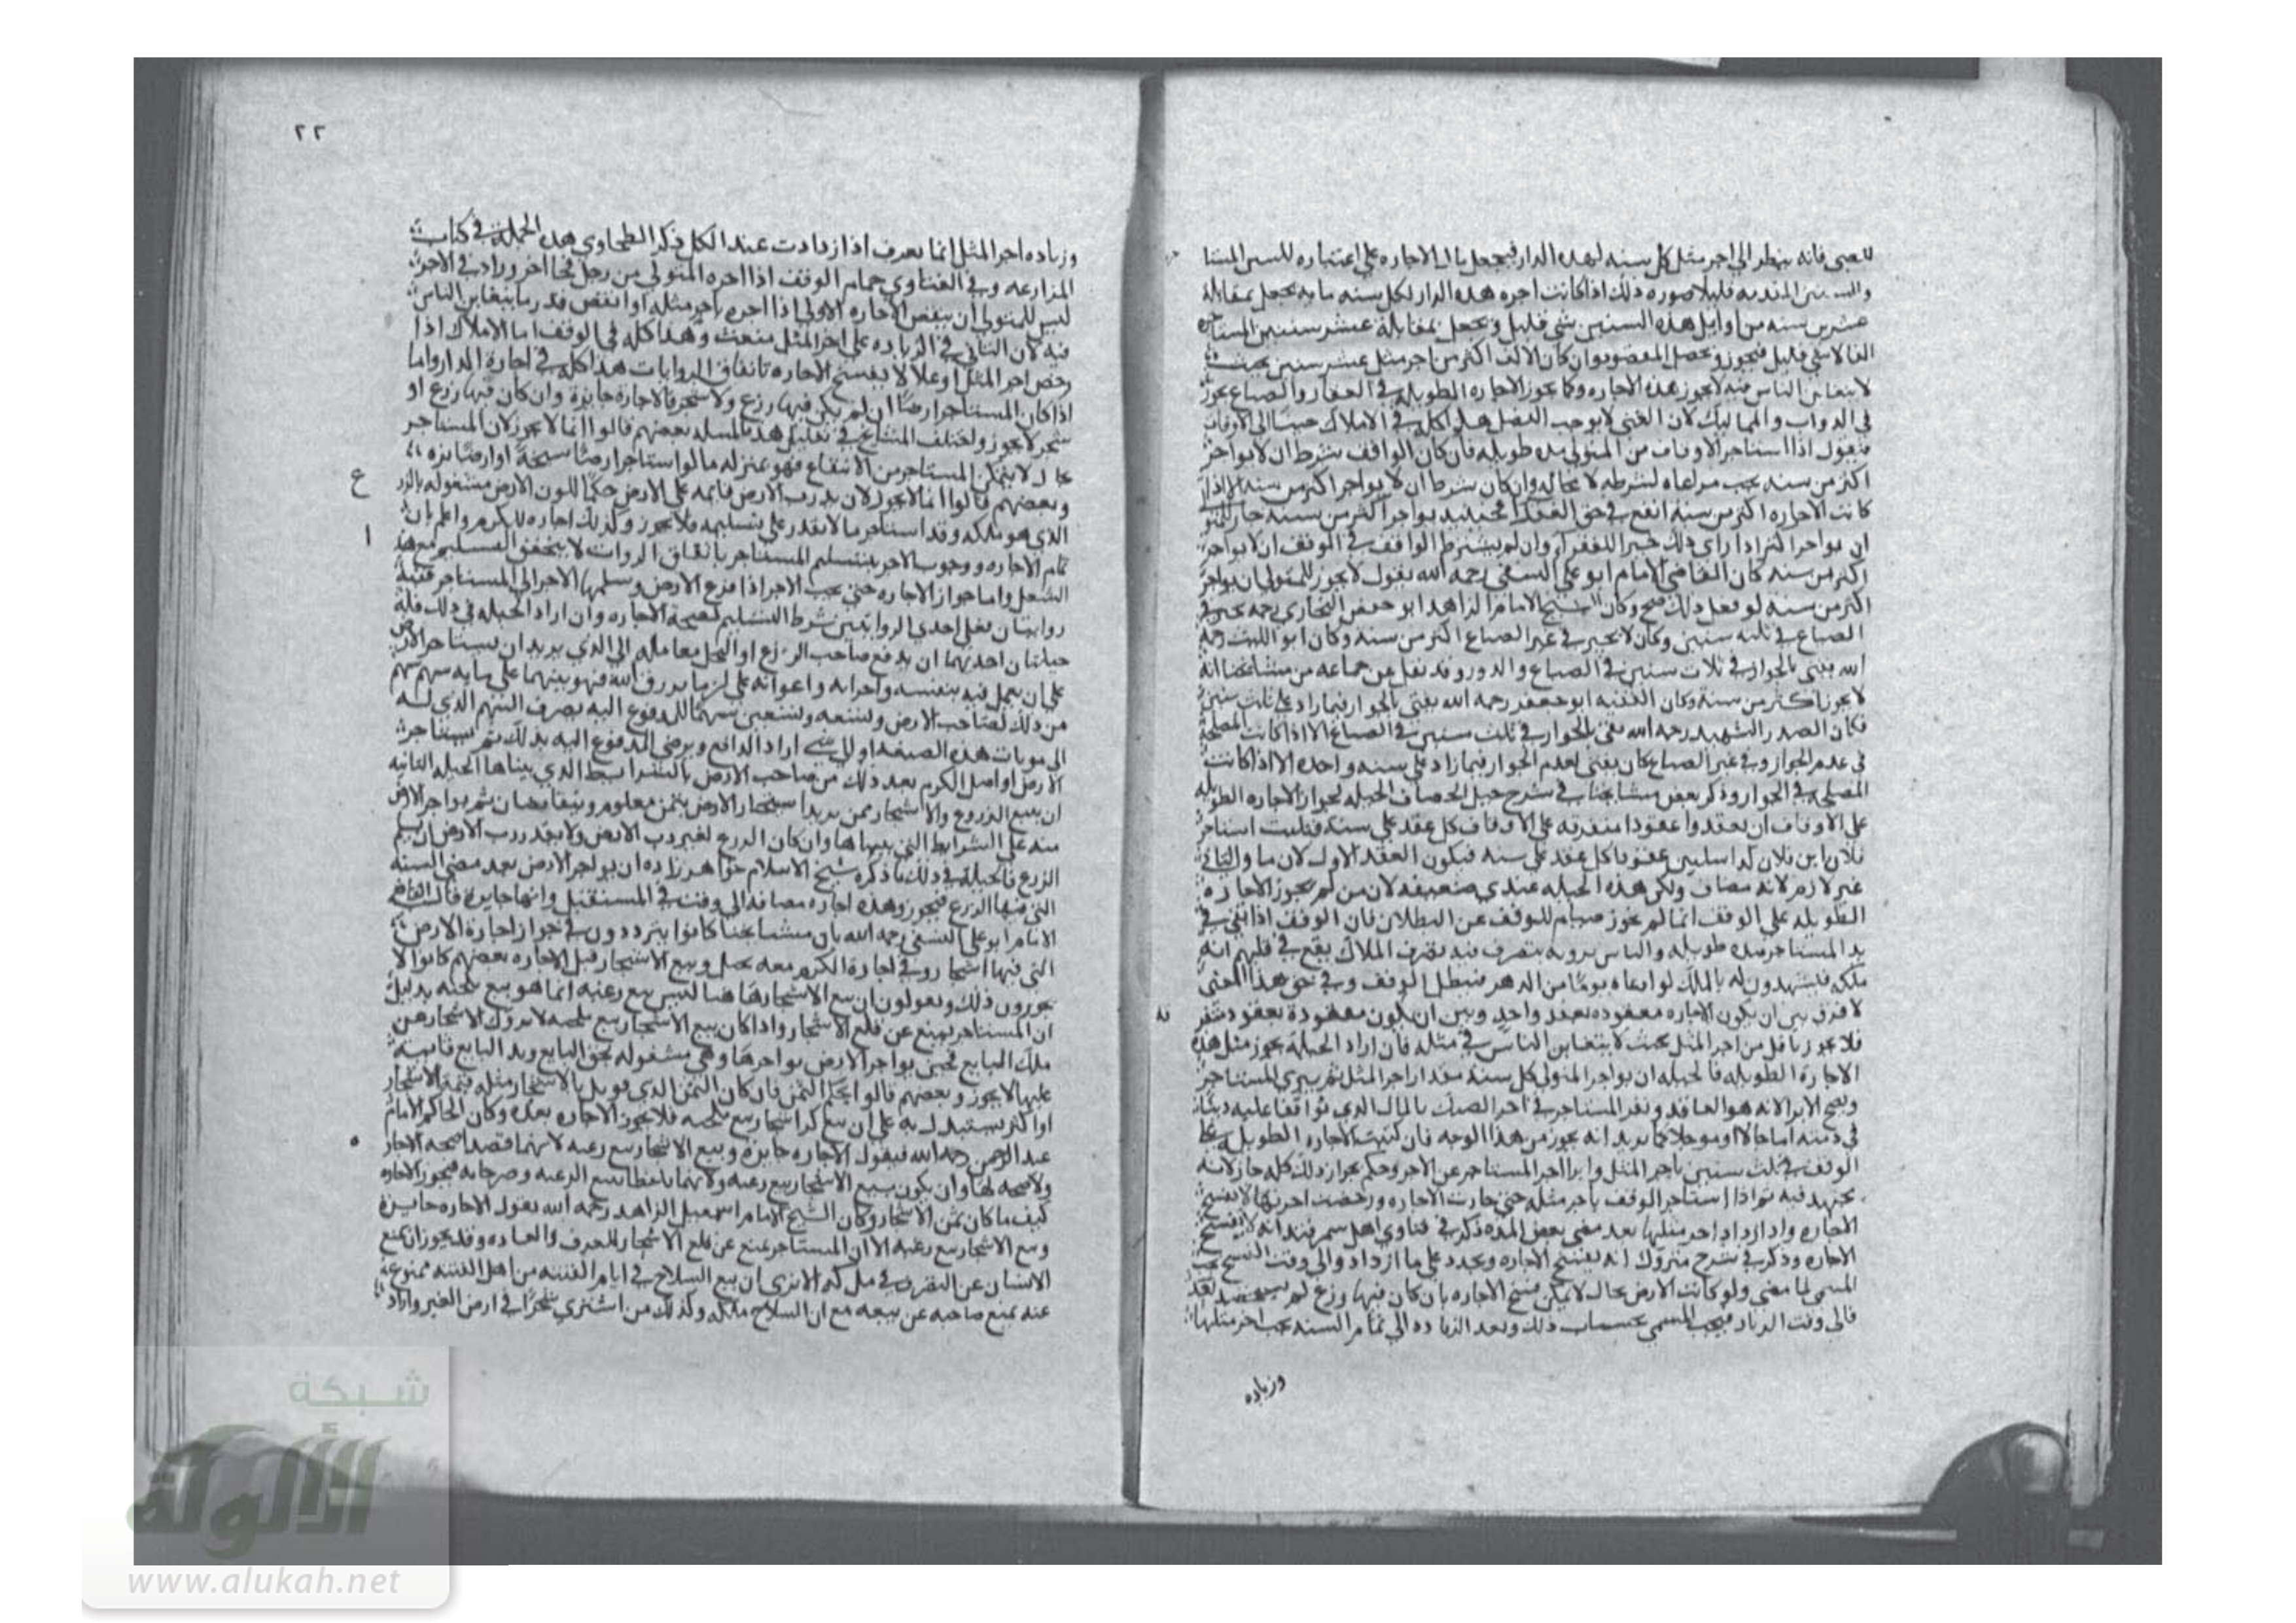 للصبي فانه ينظر الي اجر مثل كل سنه لهذه الدار فيجعل مال الاجاره علي اعتباره للسنين
والسنين المتقدمه قليلا صوره ذلك اذا كانت اجره هذه الدار لكل سنه مايه يجعل بمقابلة
عشرين سنه من اوايل هذه السنين شي قليل ويجعل بمقابلة عشر سنين
الفا الا شي قليل فيجوز ويحصل المقصود وان كان الالف اكثر من اجر مثل عشر سنين بحيث
لا يتغابن الناس فيه لا يجوز هذه الاجاره وكما يجوز الاجاره الطويله في العقار والضياع يجوز
في الدواب والمماليك لان المعنى لا يوجب الفصل هذا كله في الاملاك جينا الى الاوقاف
فنقول اذا استاجر الاوقاف من المتولي مده طويله فان كان الواقف شرط ان لا يواجر
اكثر من سنه يجب مراعاه لشرطه لا محاله وان كان شرط ان لا يواجر اكثر من سنه الا اذا
كانت الاجاره اكثر من سنه انفع في حق الفقرا فحينيذ يواجر اكثر من سنه جاز للمتولي
ان يواجر اكثر اذا راى ذلك خيرا للفقرا وان لم يشترط الواقف في الوقف ان لا يواجر
اكثر من سنه كان القاضي الامام ابو علي النسفي رحمه الله يقول لا يجوز للمتولي ان يواجر
اكثر من سنه لو فعل ذلك صح وكان الشيخ الامام الزاهد ابو حفص البخاري رحمه يجيز في
الضياع في ثلثه سنين وكان لا يجيز في غير الضياع اكثر من سنه وكان ابو الليث رحمه
الله يفتى بالجواز في ثلاث سنين في الضياع والدور وقد نقل عن جماعه من مشايخنا انه
لا يجوز اكثر من سنة وكان الفقيه ابو جعفر رحمه الله يفتي بالجواز فيما زاد على ثلث سنين
فكان الصدر الشهيد رحمه الله يفتي بالجواز في ثلث سنين في الضياع الا اذا كانت المصلحة
في عدم الجواز وفي غير الضياع كان يفتي بعدم الجواز فيما زاد علي سنه واحده الا اذا كانت
المصلحه في الجواز وذكر بعض مشايخنا في شرح حيل الخصاف الحيله لجواز الاجاره الطويله
علي الاوقاف ان يعقدوا عقودا متفرقه علي الاوقاف كل عقد علي سنه فيكتب استاجر
فلان ابن فلان كذا سنين عقودا كل عقد علي سنه فيكون العقد الاول لازما والثاني
غير لازم لانه مضاف ولكن هذه الحيله عندي ضعيفه لان من لم يجوز الاجاره
الطويله علي الوقف انما لم يجوز صيانه للوقف عن البطلان فان الوقف اذا بقي في
يد المستاجر مده طويله والناس يرونه يتصرف فيه تصرف الملاك يقع في قلبهم انه
ملكه فيشهدون له بالملك لو ادعاه يوما من الدهر فيبطل الوقف وفي حق هذا المعنى
لا فرق بين ان يكون الاجاره معقوده بعقد واحد وبين ان يكون معقودة بعقود
فلا يجوز باقل من اجر المثل بحيث لا يتغابن الناس في مثله فان اراد الحيلة يجوز مثل هذه
الاجارة الطويله فالحيله ان يواجر المتولي كل سنة مقدار اجر المثل ثم يبري المستاجر
ويصح الابرا لانه هو العاقد ويقر المستاجر في اخر الصك بالمال الذي تواقفا عليه دينا
في ذمته اما حالا او موجلا كما يريد انه يجوز من هذا الوجه فان كتبت الاجاره الطويله
الوقف في ثلث سنين باجر المثل وابرا اجر المستاجر عن الاجر وحكم بجواز ذلك كله جاز لانه
مجتهد فيه ثم اذا استاجر الوقف باجر مثله حتى جازت الاجاره ورخصت اجرتها لا تفسخ
الاجاره واذا ازداد اجر مثلها بعد مضى بعض المده ذكر في فتاوي اهل سمرقند انه لا يفسخ
الاجاره وذكر في شرح متروك انه يفسخ الاجاره ويجدد علي ما ازداد والي وقت الفسخ يجب
المسمى لما مضى ولو كانت الارض بحال لا يمكن فسخ الاجاره بان كان فيها زرع لم يستحصد بعد
فالى وقت الزياده يجب المسمى بحساب ذلك وبعد الزياده الي تمام السنه يجب اجر مثلها
وزياده
٢٢
وزياده اجر المثل انما يعرف اذا ازدادت عند الكل ذكر الطحاوي هذه الجمله في كتاب
المزارعه وفي الفتاوي حمام الوقف اذا اجره المتولي من رجل فجا اخر وزاد في الاجر
ليس للمتولي ان ينقض الاجاره الاولي اذا اجره باجر مثله او انقص قدر ما يتغابن الناس
فيه لان الثاني في الزياده علي اجر المثل متعنت وهذا كله في الوقف اما الاملاك اذا
رخص اجر المثل او غلا لا يفسخ الاجاره باتفاق الروايات هذا كله في اجارة الدار واما
اذا كان المستاجر ارضا ان لم يكن فيها زرع ولا شجر فالاجارة جايزة وان كان فيها زرع او
شجر لا يجوز واختلف المشايخ في تعليل هذه المسله بعضهم قالوا انما لا يجوز لان المستاجر
بحال لا يتمكن المستاجر من الانتفاع فهو بمنزله ما لو استاجر ارضا سبخة او ارضا نزه
وبعضهم قالوا انما لا يجوز لان يد رب الارض قايمه على الارض حكما لكون الارض مشغوله بالزرع
الذي هو ملكه وقد استاجر ما لا يقدر على تسليمه فلا يجوز وكذلك اجاره الكرم واعلم بان
تمام الاجاره ووجوب الاجر بتسليم المستاجر باتفاق الروايات لا يتحقق التسليم مع هذا
الشغل واما جواز الاجاره حتى يجب الاجر اذا فرغ الارض وسلمها الاجر الى المستاجر ففيه
روايتان ففي احدي الروايتين شرط التسليم لصحة الاجاره وان اراد الحيله في ذلك فله
حيلتان احديهما ان يدفع صاحب الزرع او النخل معامله الي الذي يريد ان يستاجر الارض
علي ان يعمل فيه بنفسه واجرايه واعوانه علي ان ما يرزق الله فهو بينهما على مايه سهم سهم
من ذلك لصاحب الارض وتسعه وتسعين سهما للمدفوع اليه يصرف السهم الذي له
الى مونات هذه الضيعه او الي شي اراد الدافع ويرضى المدفوع اليه بذلك ثم يستاجر
الارض او اصل الكرم بعد ذلك من صاحب الارض بالشرايط الذي بيناها الحيله الثانيه
ان يبيع الزروع والاشجار ممن يريد استيجار الارض بثمن معلوم ويتقابضان ثم يواجر الارض
منه علي الشرايط التي بيناها وان كان الزرع لغير رب الارض ولا يقدر رب الارض ان يسلم
الزرع فالحيلة في ذلك ما ذكره شيخ الاسلام خواهر زاده ان يواجر الارض بعد مضي السنه
التي فيها الزرع فيجوز وهذه اجاره مضافه الي وقت في المستقبل وانها جايزة قال القاضي
الامام ابو علي النسفي رحمه الله بان مشايخنا كانوا يترددون في جواز اجارة الارض
التي فيها اشجار وفي اجارة الكرم معه بحيل وبيع الاشجار قبل الاجاره بعضهم كانوا لا
يجوزون ذلك ويقولون ان بيع الاشجار هاهنا ليس بيع رغبه انما هو بيع تلجئه بدليل
ان المستاجر يمنع عن قلع الاشجار واذا كان بيع الاشجار بيع تلجيه لا تزول الاشجار عن
ملك البايع فحين يواجر الارض يواجرها وهي مشغوله بحق البايع ويد البايع قايمة
عليها لا يجوز وبعضهم قالوا يحكم الثمن فان كان الثمن الذي قوبل بالاشجار مثل قيمة الاشجار
او اكثر يستبدل به علي ان بيع الاشجار بيع تلجيه فلا يجوز الاجاره بعده وكان الحاكم الامام
عبد الرحمن رحمه الله فيقول الاجاره جايزة وبيع الاشجار بيع رغبه لانهما قصدا صحه الاجار
ولا صحه لها الا وان يكون بيع الاشجار بيع رغبه ولانهما تلفظا ببيع الرغبه وصرحا به فيجوز الاجاره
كيف ما كان ثمن الاشجار وكان الشيخ الامام اسمعيل الزاهد رحمه الله يقول الاجاره جايزة
وبيع الاشجار بيع رغبه الا ان المستاجر يمنع عن قلع الاشجار للعرف والعاده وقد يجوز ان يمنع
الانسان عن التصرف في ملكه الا ترى ان بيع السلاح في ايام الفتنه من اهل الفتنه ممنوعة
عنه يمنع صاحبه عن بيعه مع ان السلاح ملكه وكذلك من اشترى شجرا في ارض الغير واراد
شبكة
الألوكة
www.alukah.net